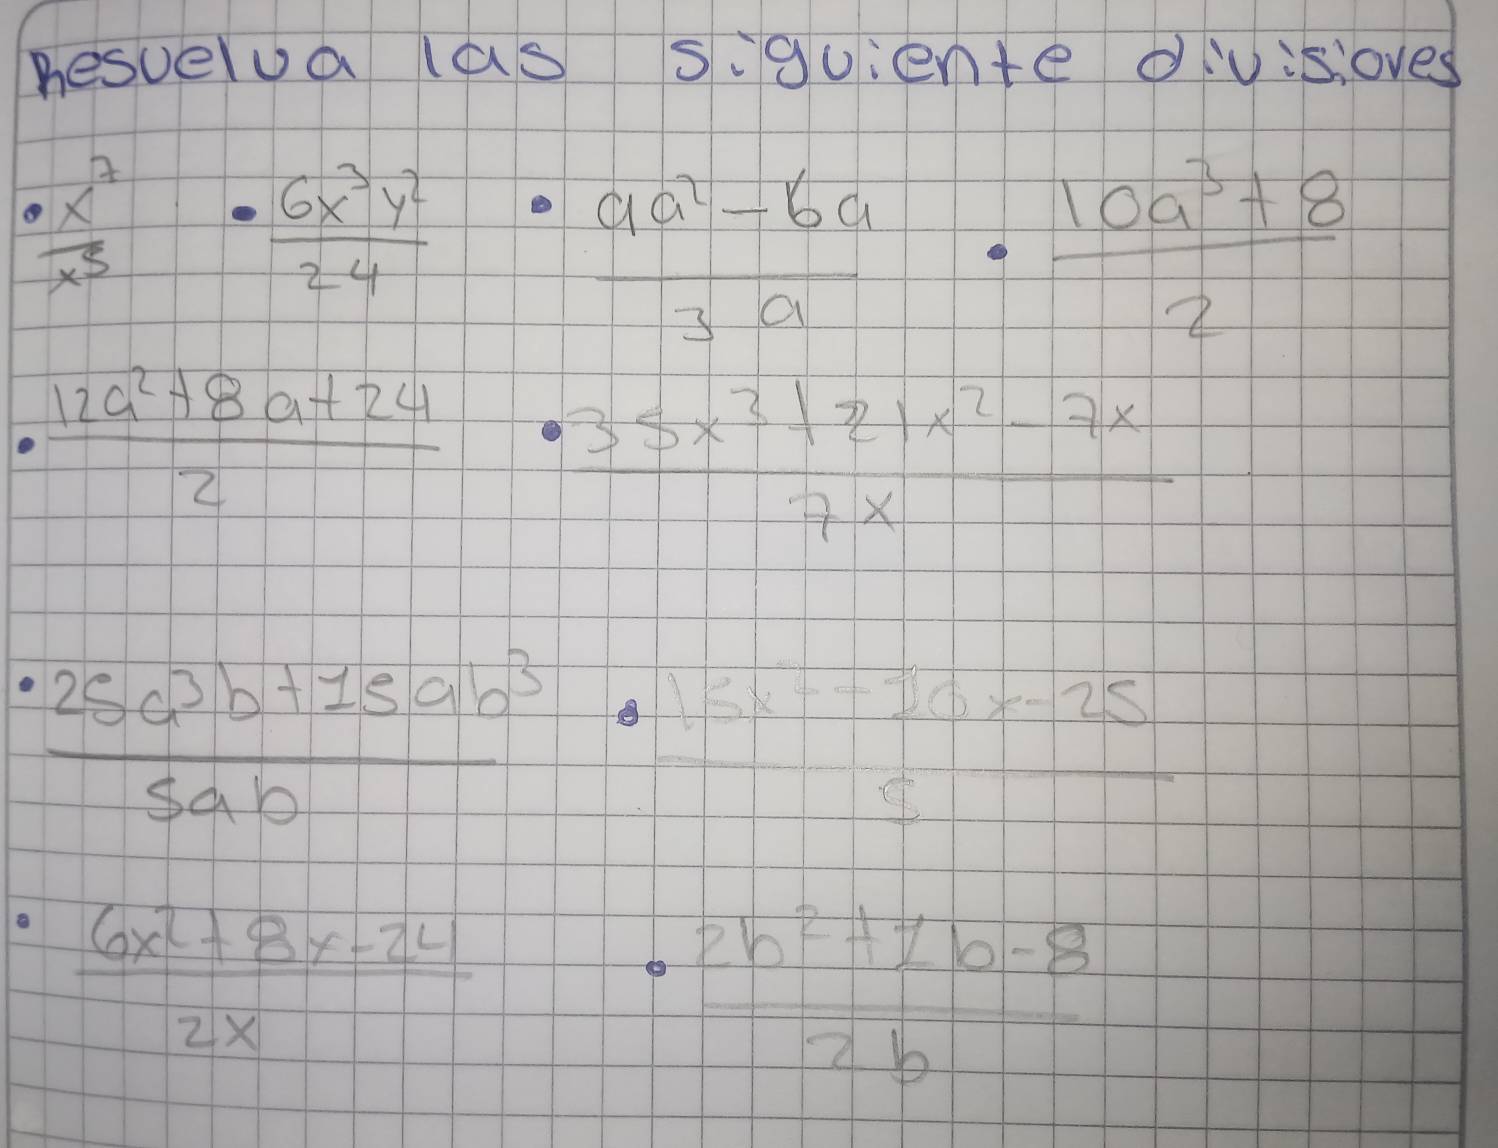 Resuelva las siguiente divisiones
• x⁷/x⁵ • 6x³y²/24 • 9a²-6a/3a • 10a³+8/2
• 12a²+8a+24/2 • 35x³+21x²-7x/7x
• 25a³b+15ab³/5ab • 15x²-10x-25/5
• 6x²+8x-24/2x • 2b²+1b-8/2b